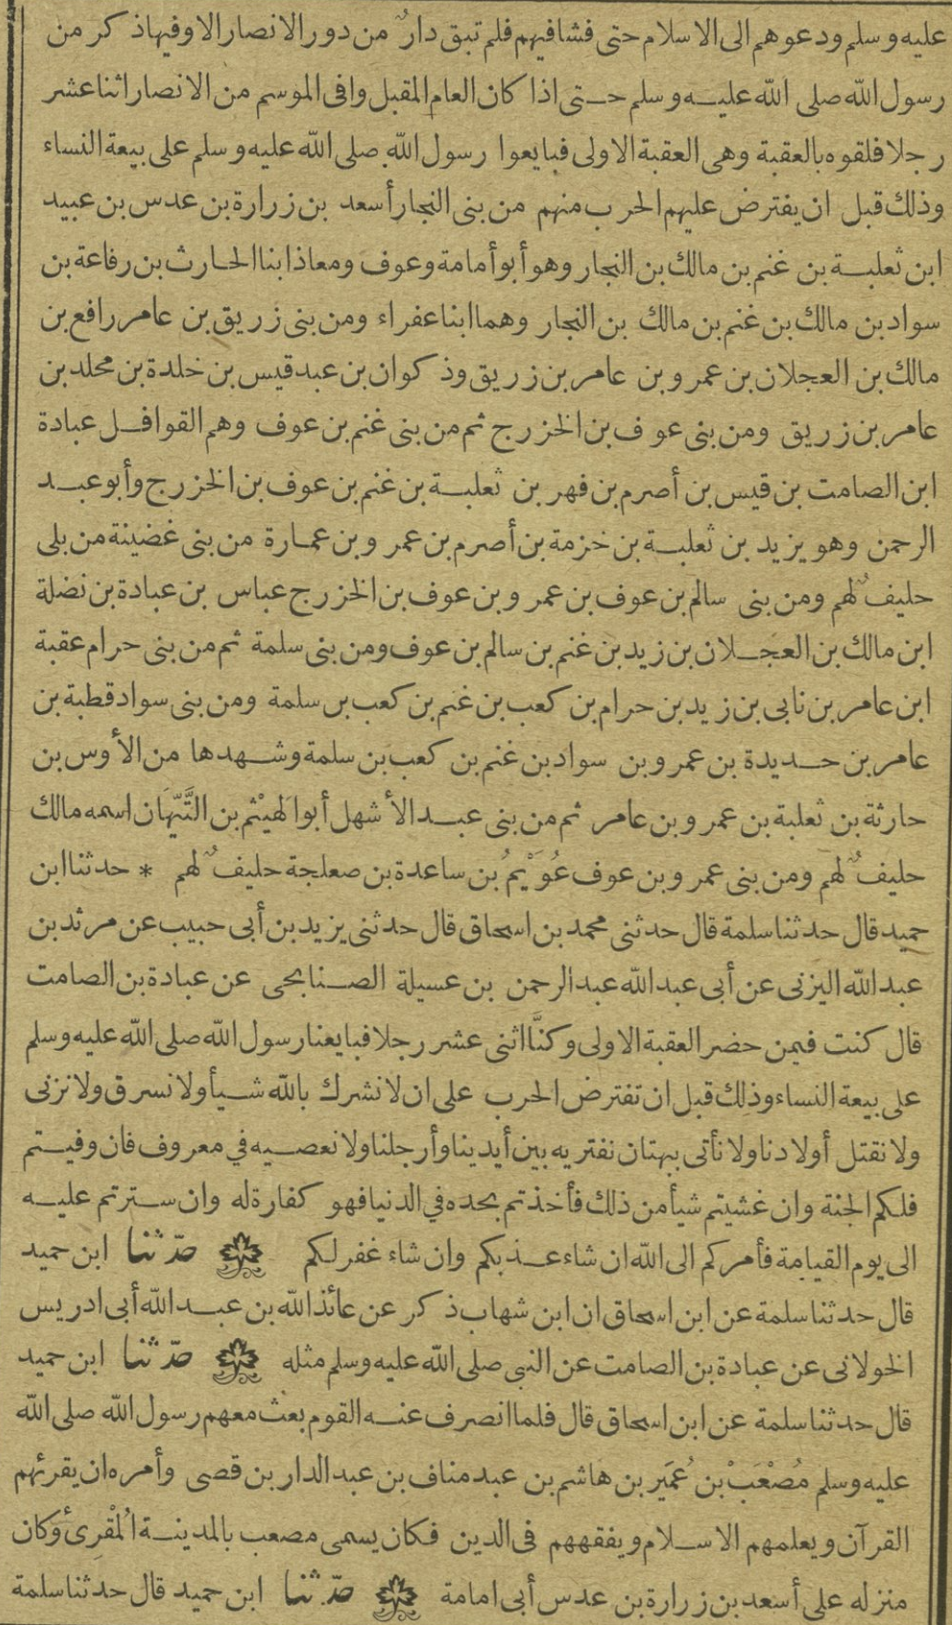 عليه وسلم ودعوهم الى الاسلام حتى فشا فيهم فلم تبق دارٌ من دور الانصار الا وفيها ذكر من
رسول الله صلى الله عليه وسلم حتى اذا كان العام المقبل وافى الموسم من الانصار اثنا عشر
رجلا فلقوه بالعقبة وهى العقبة الاولى فبايعوا رسول الله صلى الله عليه وسلم على بيعة النساء
وذلك قبل ان يفترض عليهم الحرب منهم من بنى النجار أسعد بن زرارة بن عدس بن عبيد
ابن ثعلبة بن غنم بن مالك بن النجار وهو أبو أمامة وعوف ومعاذ ابنا الحارث بن رفاعة بن
سواد بن مالك بن غنم بن مالك بن النجار وهما ابنا عفراء ومن بنى زريق بن عامر رافع بن
مالك بن العجلان بن عمرو بن عامر بن زريق وذكوان بن عبد قيس بن خلدة بن مخلد بن
عامر بن زريق ومن بنى عوف بن الخزرج ثم من بنى غنم بن عوف وهم القوافل عبادة
ابن الصامت بن قيس بن أصرم بن فهر بن ثعلبة بن غنم بن عوف بن الخزرج وأبو عبد
الرحمن وهو يزيد بن ثعلبة بن خزمة بن أصرم بن عمرو بن عمارة من بنى غضينة من بلى
حليفٌ لهم ومن بنى سالم بن عوف بن عمرو بن عوف بن الخزرج عباس بن عبادة بن نضلة
ابن مالك بن العجلان بن زيد بن غنم بن سالم بن عوف ومن بنى سلمة ثم من بنى حرام عقبة
ابن عامر بن نابى بن زيد بن حرام بن كعب بن غنم بن كعب بن سلمة ومن بنى سواد قطبة بن
عامر بن حديدة بن عمرو بن سواد بن غنم بن كعب بن سلمة وشهدها من الأوس بن
حارثة بن ثعلبة بن عمرو بن عامر ثم من بنى عبد الأشهل أبو الهيْثم بن التَّيّهَان اسمه مالك
حليفٌ لهم ومن بنى عمرو بن عوف عُوَيْمُ بن ساعدة بن صعلجة حليفٌ لهم * حدثنا ابن
حميد قال حدثنا سلمة قال حدثنى محمد بن اسحاق قال حدثنى يزيد بن أبى حبيب عن مرثد بن
عبد الله اليزنى عن أبى عبد الله عبد الرحمن بن عسيلة الصنابحى عن عبادة بن الصامت
قال كنت فيمن حضر العقبة الاولى وكنَّا اثنى عشر رجلا فبايعنا رسول الله صلى الله عليه وسلم
على بيعة النساء وذلك قبل ان تفترض الحرب على ان لا نشرك بالله شيأ ولا نسرق ولا نزنى
ولا نقتل أولادنا ولا نأتى ببهتان نفتريه بين أيدينا وأرجلنا ولا نعصيه في معروف فان وفيتم
فلكم الجنة وان غشيتم شيأ من ذلك فأخذتم بحده في الدنيا فهو كفارة له وان سترتم عليه
الى يوم القيامة فأمركم الى الله ان شاء عذبكم وان شاء غفر لكم حدّثنا ابن حميد
قال حدثنا سلمة عن ابن اسحاق ان ابن شهاب ذكر عن عائذ الله بن عبد الله أبى ادريس
الخولانى عن عبادة بن الصامت عن النبى صلى الله عليه وسلم مثله حدّثنا ابن حميد
قال حدثنا سلمة عن ابن اسحاق قال فلما انصرف عنه القوم بعث معهم رسول الله صلى الله
عليه وسلم مُصْعَبْ بن عُمَير بن هاشم بن عبد مناف بن عبد الدار بن قصى وأمره ان يقرئهم
القرآن ويعلمهم الاسلام ويفقههم فى الدين فكان يسمى مصعب بالمدينة المُقْرِئُ وكان
منزله على أسعد بن زرارة بن عدس أبى امامة حدّثنا ابن حميد قال حدثنا سلمة